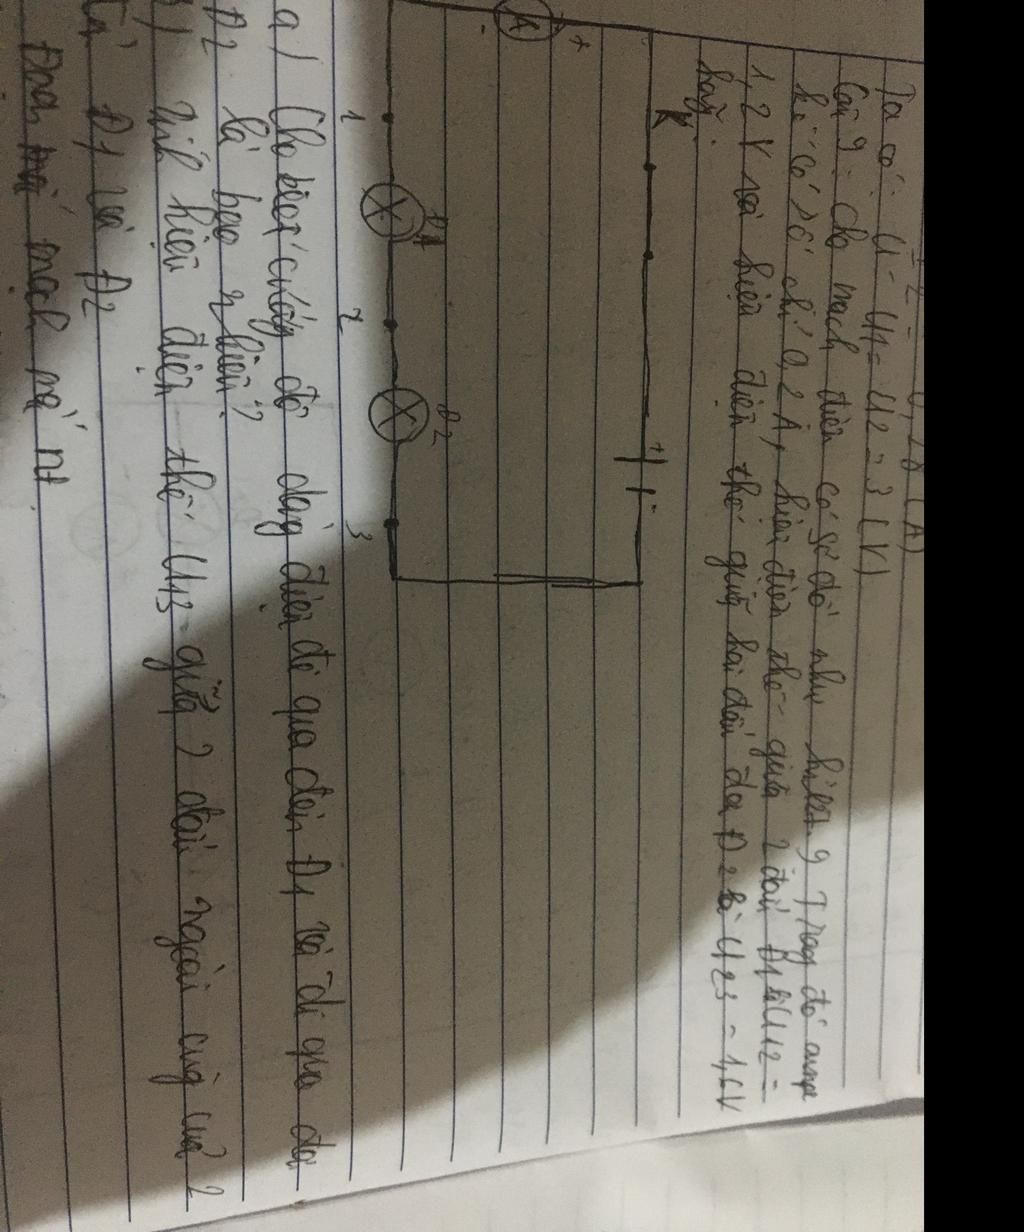 Ta có: U = U1 = U2 = 3 (V)
Câu 9: cho mạch điện có sơ đồ như hình 9 Trong đó ampe
kế có số chỉ 0,2A, hiệu điện thế giữa 2 đầu Đ1 là U12 =
1,2 V và hiệu điện thế giữa hai đầu Đ2 là U23 = 1,6V
hãy:
K
+ -
- A +
Đ1 Đ2
1 2 3
a) Cho biết cường độ dòng điện đi qua đèn Đ1 và đi qua
Đ2 là bao nhiêu?
tính hiệu điện thế U13 giữa 2 đầu ngoài cùng của 2
Đ1 và Đ2
Đoạn mạch mắc nt